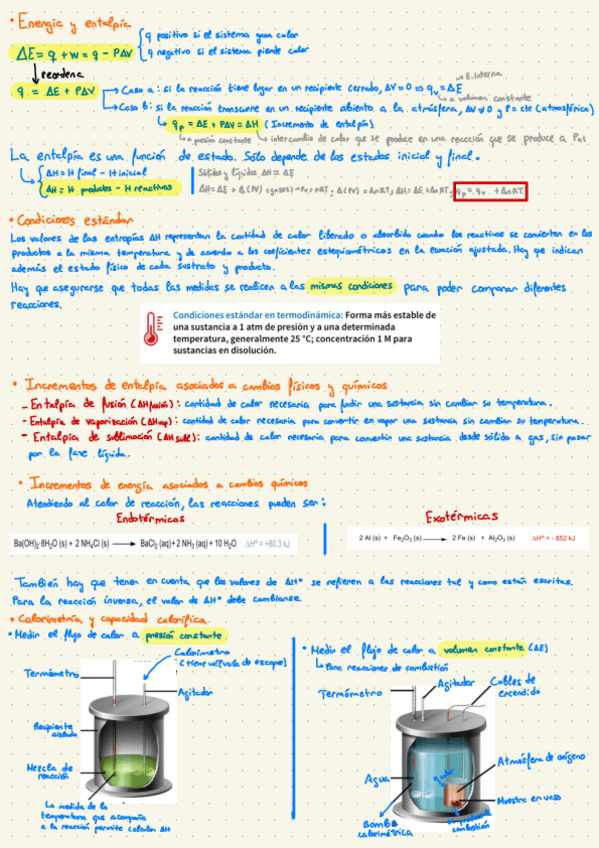 • Energía y entalpía
q positivo si el sistema gana calor
q negativo si el sistema pierde calor
ΔE = q + w = q - PΔV
reordena
q = ΔE + PΔV
Caso a: si la reacción tiene lugar en un recipiente cerrado, ΔV=0 ⇒ qv = ΔE
E. Interna
a volumen constante
Caso b: si la reacción transcurre en un recipiente abierto a la atmósfera, ΔV≠0 y P = cte (atmosférica)
qp = ΔE + PΔV = ΔH (Incremento de entalpía)
a presión constante
intercambio de calor que se produce en una reacción que se produce a P at.
La entalpía es una función de estado. Sólo depende de los estados inicial y final.
ΔH = H final - H inicial
ΔH = H productos - H reactivos
Sólidos y líquidos ΔH = ΔE
ΔH = ΔE + Δ(PV) (gases) → PV = nRT ; Δ(PV) = ΔnRT ; ΔH = ΔE + ΔnRT ;
qp = qv + ΔnRT
• Condiciones estándar
Los valores de las entropías ΔH representan la cantidad de calor liberado o absorbido cuando los reactivos se convierten en los
productos a la misma temperatura y de acuerdo a los coeficientes estequiométricos en la ecuación ajustada. Hay que indicar
además el estado físico de cada sustrato y producto.
Hay que asegurarse que todas las medidas se realicen a las mismas condiciones para poder comparar diferentes
reacciones.
Condiciones estándar en termodinámica: Forma más estable de
una sustancia a 1 atm de presión y a una determinada
temperatura, generalmente 25 °C; concentración 1 M para
sustancias en disolución.
• Incrementos de entalpía asociados a cambios físicos y químicos
- Entalpía de fusión (ΔHfusión): cantidad de calor necesaria para fundir una sustancia sin cambiar su temperatura.
- Entalpía de vaporización (ΔHvap): cantidad de calor necesaria para convertir en vapor una sustancia sin cambiar su temperatura.
- Entalpía de sublimación (ΔHsubl): cantidad de calor necesaria para convertir una sustancia desde sólido a gas, sin pasar
por la fase líquida.
• Incrementos de energía asociados a cambios químicos
Atendiendo al calor de reacción, las reacciones pueden ser:
Endotérmicas
Exotérmicas
Ba(OH)₂·8H₂O (s) + 2 NH₄Cl (s) ⟶ BaCl₂ (aq) + 2 NH₃ (aq) + 10 H₂O ΔHº = +80.3 kJ
2 Al (s) + Fe₂O₃ (s) ⟶ 2 Fe (s) + Al₂O₃ (s) ΔHº = - 852 kJ
También hay que tener en cuenta que los valores de ΔHº se refieren a las reacciones tal y como están escritas.
Para la reacción inversa, el valor de ΔHº debe cambiarse.
• Calorimetría y capacidad calorífica
• Medir el flujo de calor a presión constante
Calorímetro
(tiene válvula de escape)
Termómetro
Agitador
Recipiente
aislado
Mezcla de
reacción
La medida de la
temperatura que acompaña
a la reacción permite calcular ΔH
• Medir el flujo de calor a volumen constante (ΔE)
Para reacciones de combustión
Termómetro
Agitador
Cables de
encendido
Atmósfera de oxígeno
Agua
calor
Muestra en vaso
Bomba
calorimétrica
se produce la
combustión